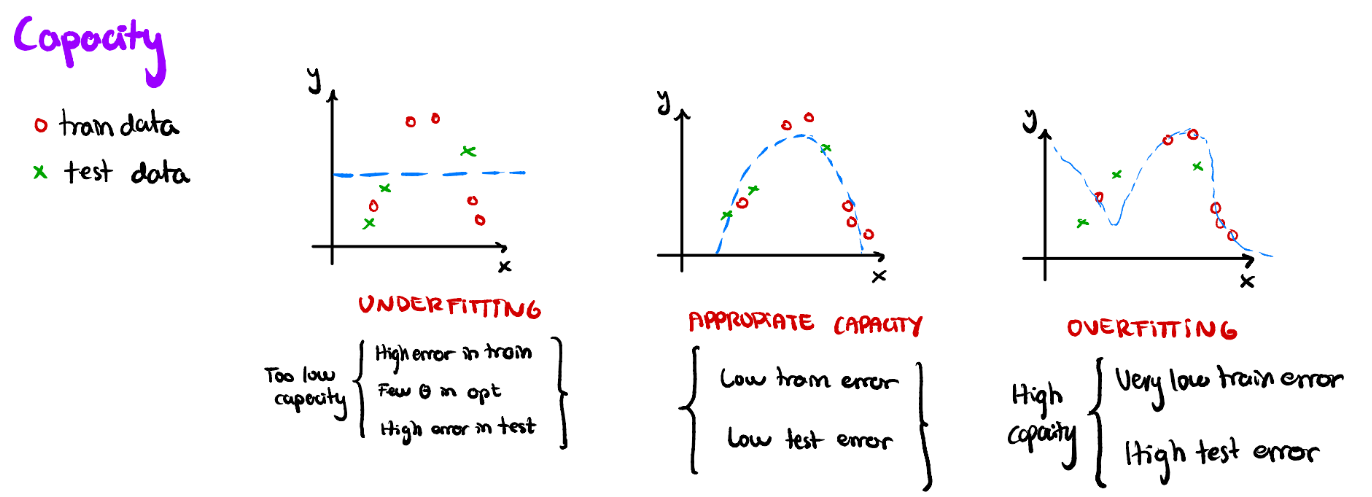 Capacity
o train data
x test data
y
x
UNDERFITTING
Too low capacity
High error in train
Few θ in opt
High error in test
y
x
APPROPIATE CAPACITY
Low train error
Low test error
y
x
OVERFITTING
High capacity
Very low train error
High test error